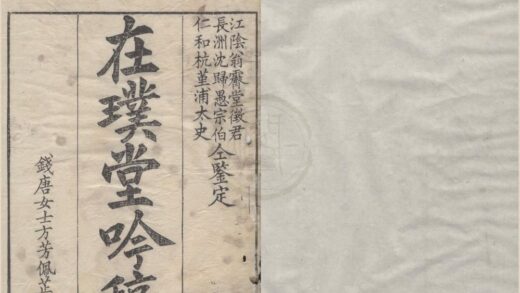 江陰翁霽堂徵君
長洲沈歸愚宗伯
仁和杭堇浦太史
仝鑒定
在璞堂吟稿
錢唐女士方芳佩芷